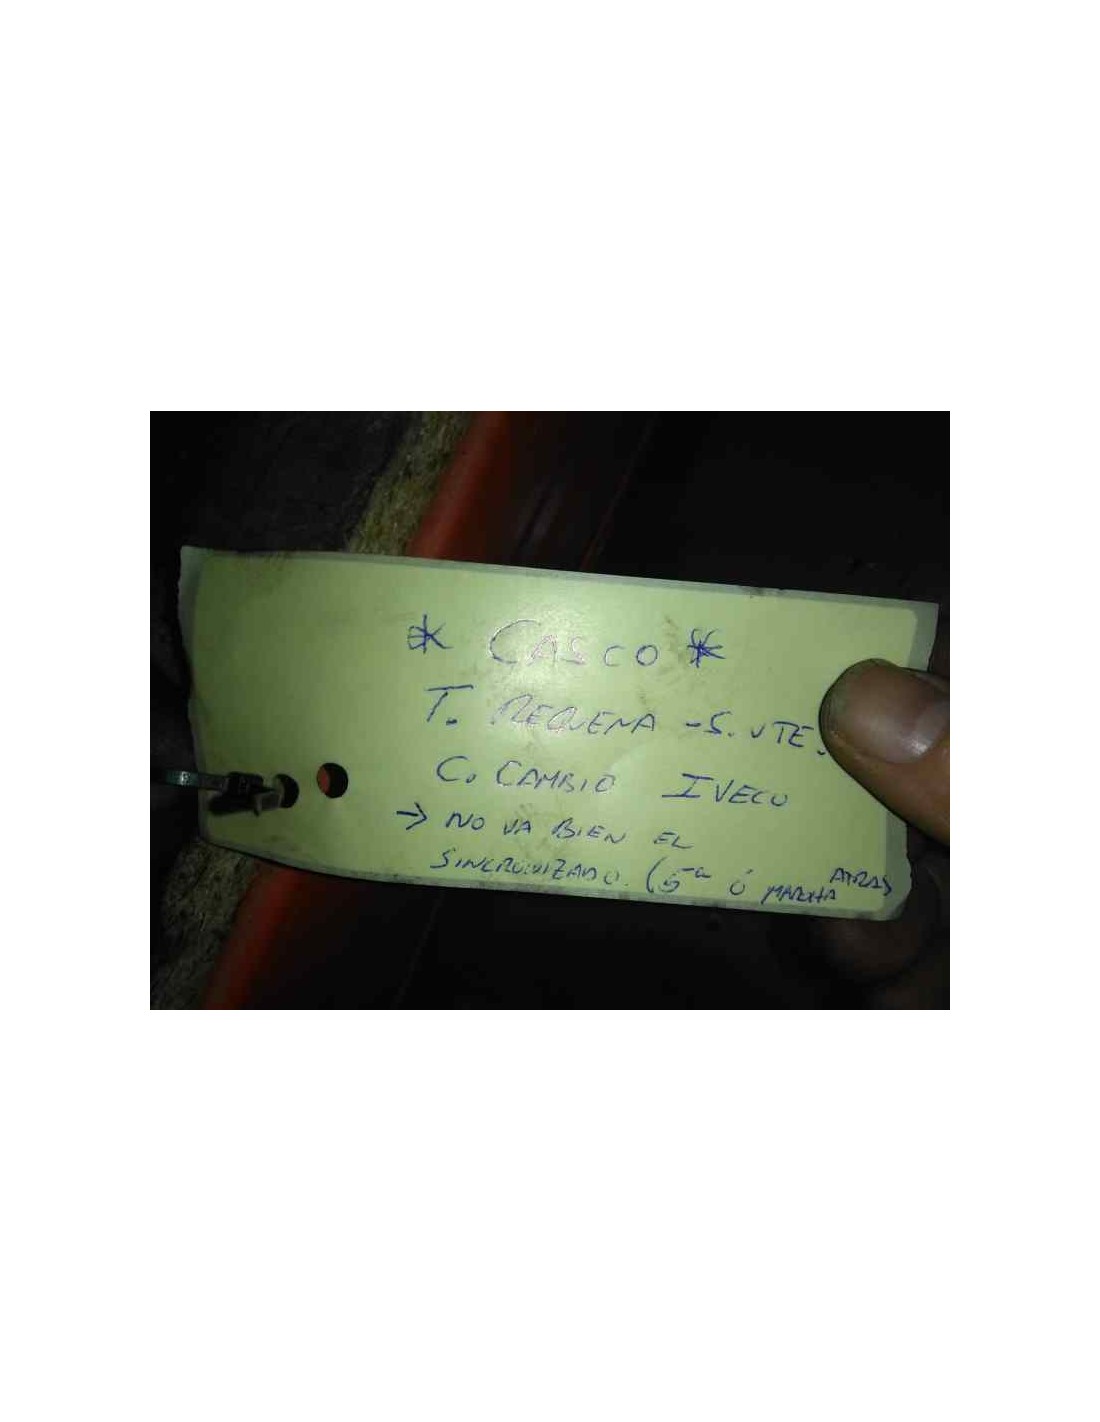 * CASCO *
T. REQUENA - S. VTE.
C. CAMBIO IVECO
→ NO VA BIEN EL
SINCRONIZADO. (5ª Ó MARCHA ATRAS)